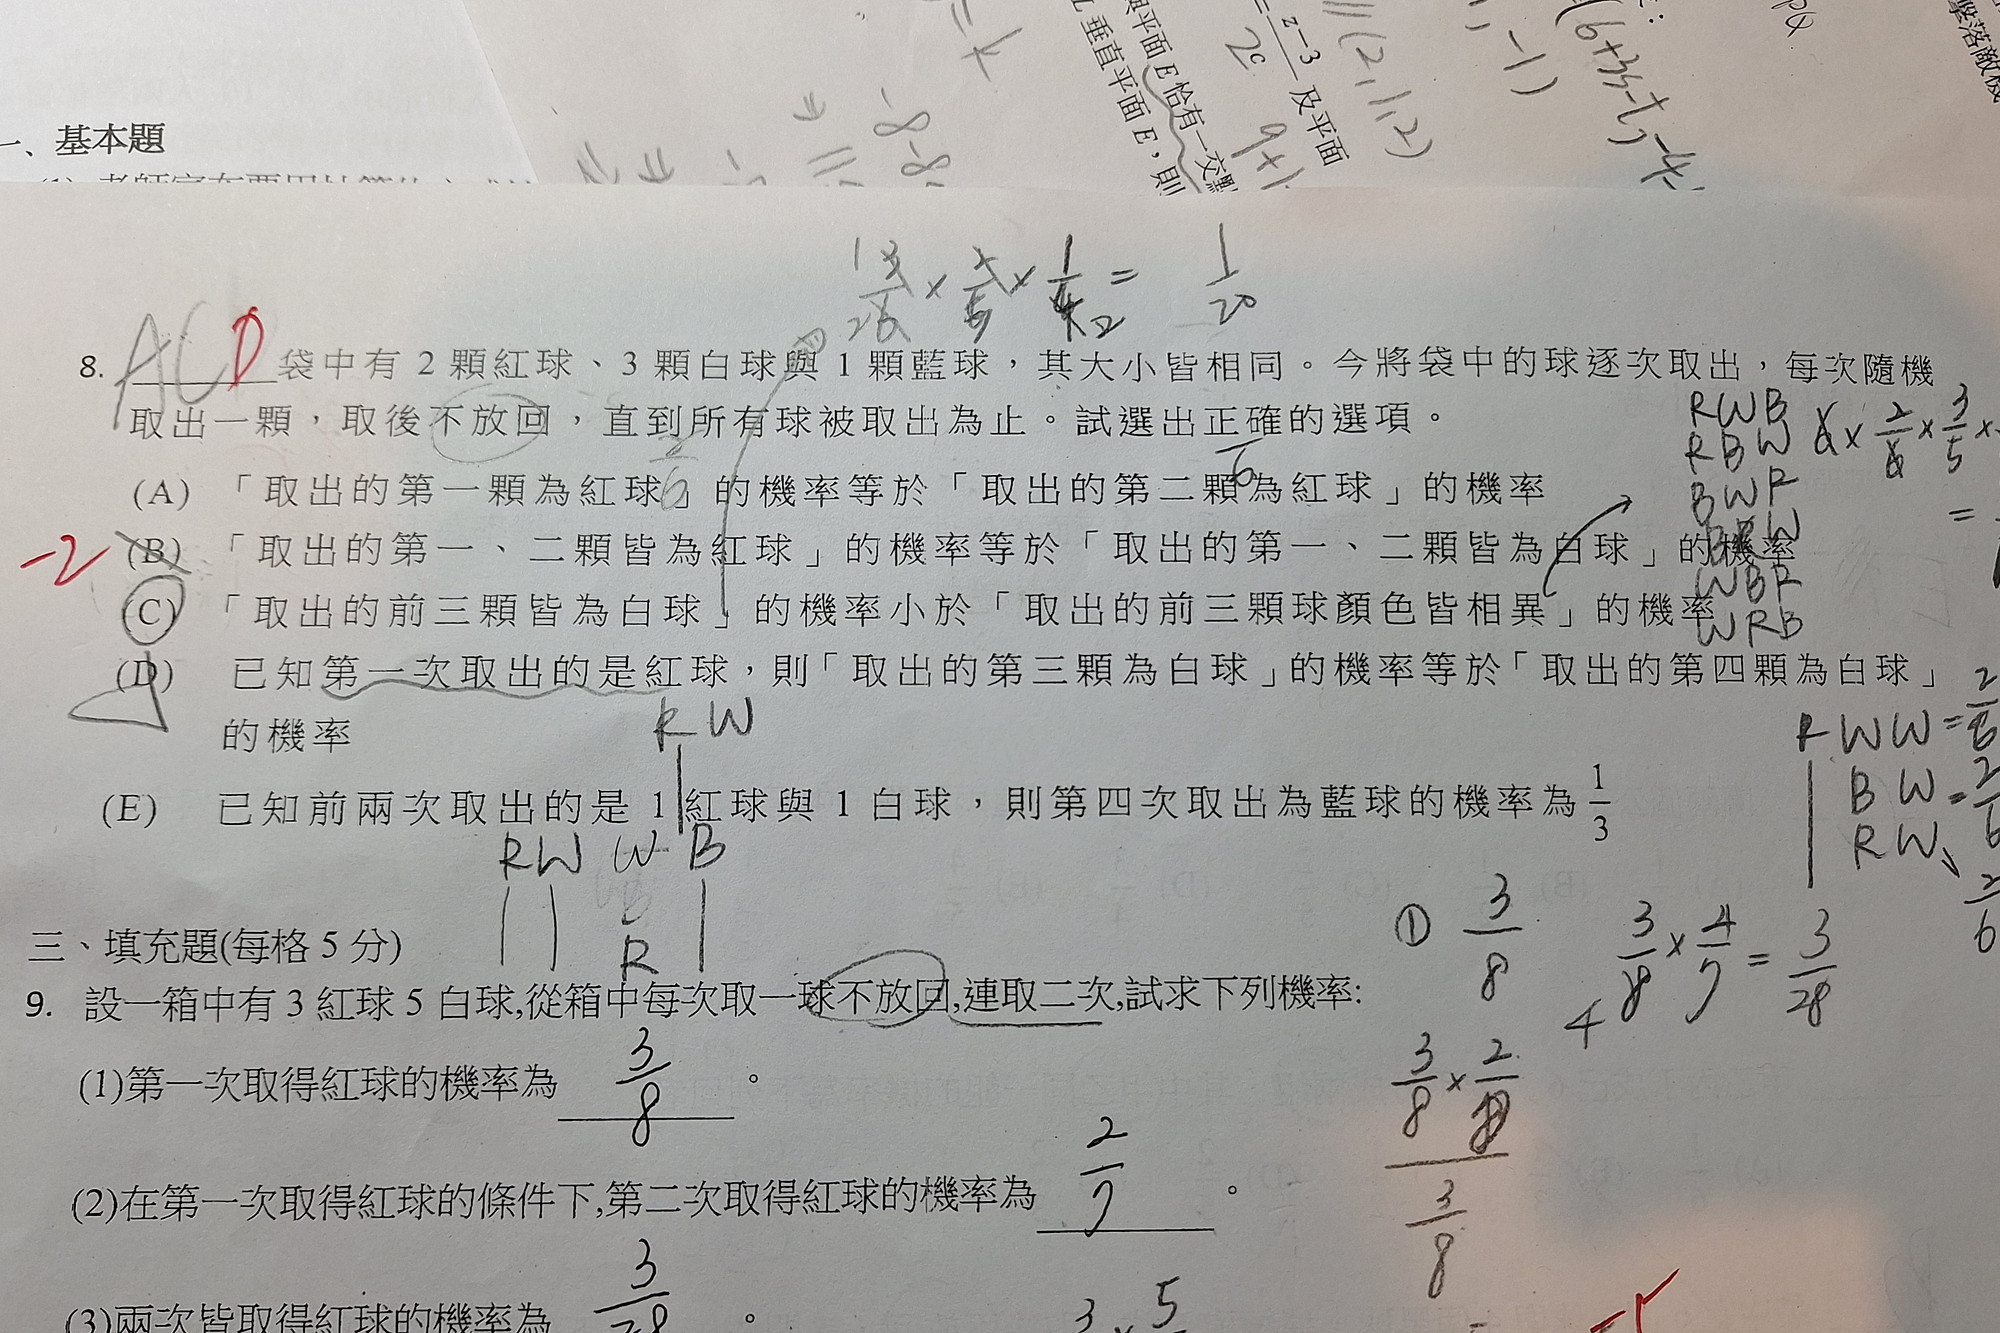 一、基本題
z-3
2c 及平面
與平面E恰有一交點
L垂直平面E,則
擊落敵機
(2,1,2)
ACD
8. 袋中有 2 顆紅球、3 顆白球與 1 顆藍球,其大小皆相同。今將袋中的球逐次取出,每次隨機
取出一顆,取後不放回,直到所有球被取出為止。試選出正確的選項。
(A) 「取出的第一顆為紅球」的機率等於「取出的第二顆為紅球」的機率
-2
(B) 「取出的第一、二顆皆為紅球」的機率等於「取出的第一、二顆皆為白球」的機率
(C) 「取出的前三顆皆為白球」的機率小於「取出的前三顆球顏色皆相異」的機率
(D) 已知第一次取出的是紅球,則「取出的第三顆為白球」的機率等於「取出的第四顆為白球」
的機率
(E) 已知前兩次取出的是 1 紅球與 1 白球,則第四次取出為藍球的機率為 1/3
RWB
RBW
BWR
BRW
WBR
WRB
R W
R W W B
R
R W W =
B W =
R W
三、填充題(每格 5 分)
① 3/8
3/8 × 4/7 = 3/28
9. 設一箱中有 3 紅球 5 白球,從箱中每次取一球不放回,連取二次,試求下列機率:
(1)第一次取得紅球的機率為 3/8 。
(2)在第一次取得紅球的條件下,第二次取得紅球的機率為 2/7 。
(3)兩次皆取得紅球的機率為 3/28 。